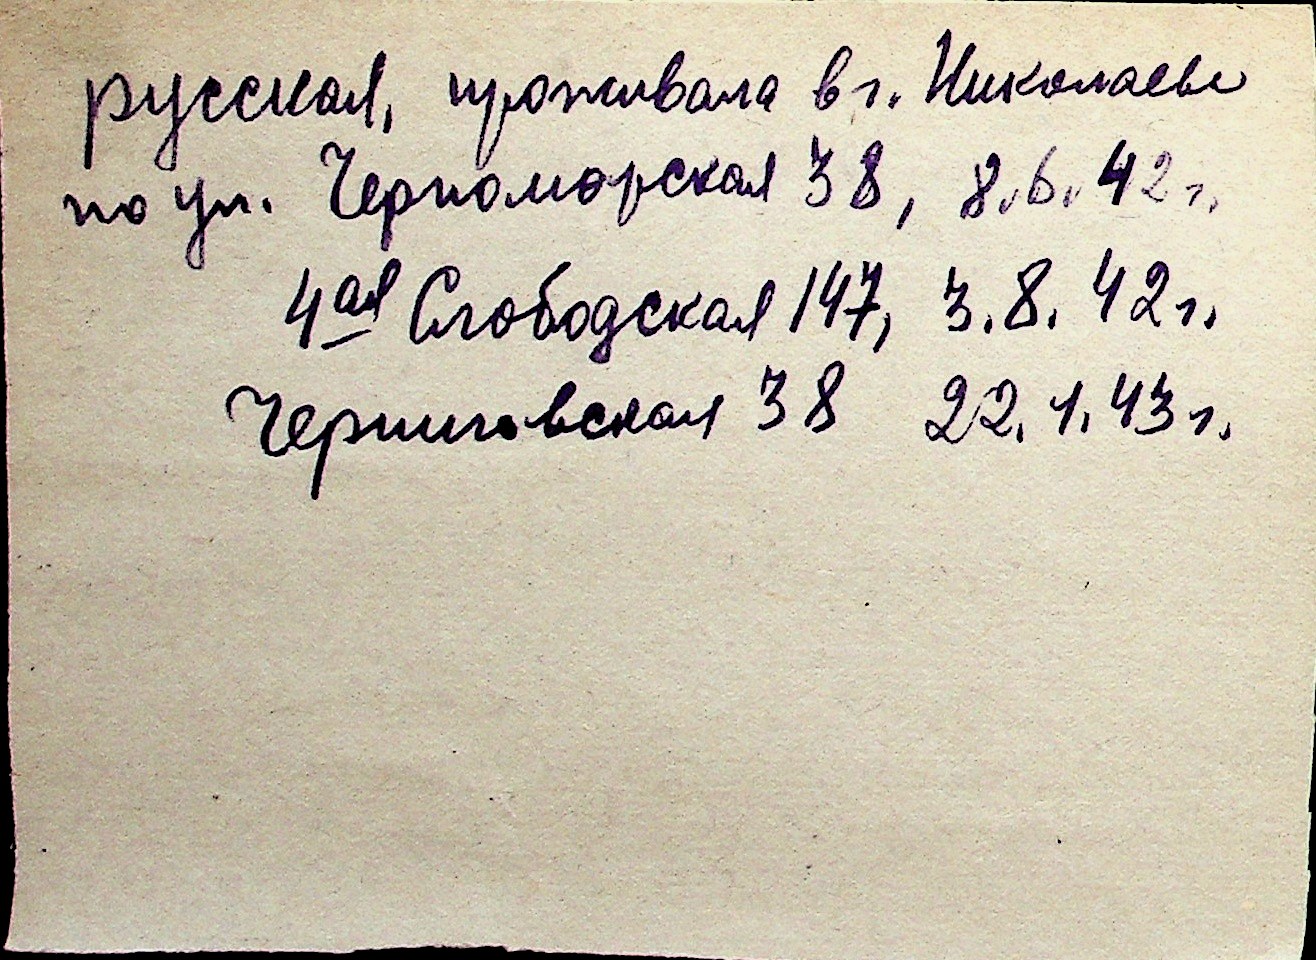 русская, проживала в г. Николаеве
по ул. Черноморская 38, 8.6.42 г.
4ая Слободская 147, 3.8.42 г.
Черниговская 38 22.1.43 г.